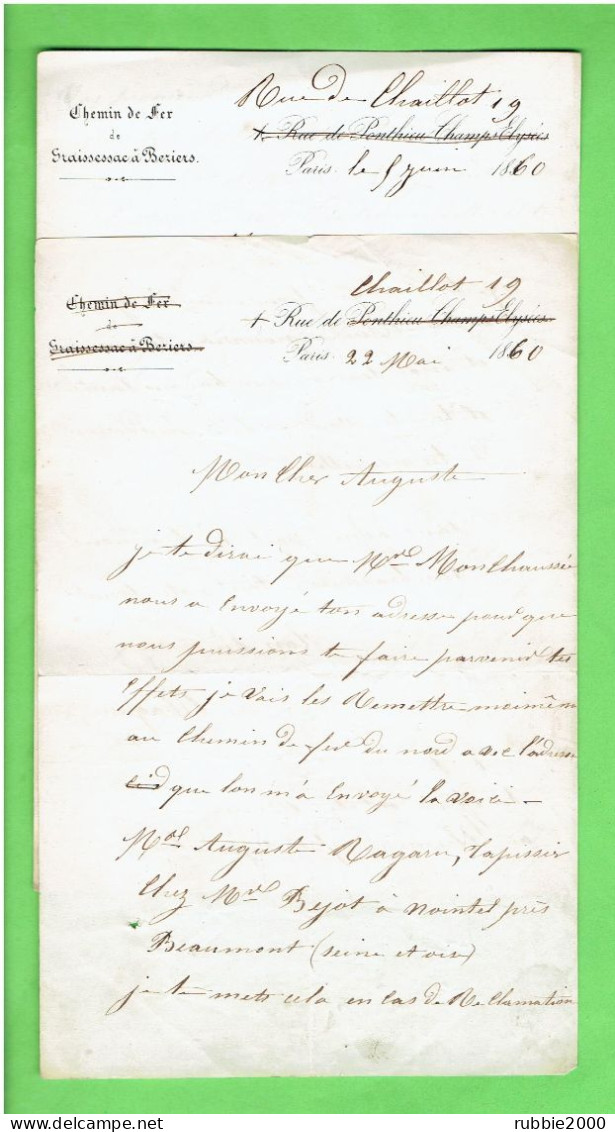 Rue de Chaillot 19
Chemin de Fer
de
Graissessac à Beziers.
+ Rue de Ponthieu Champs Elysées
Paris. le 5 juin 1860
Chaillot 19
Chemin de Fer
de
Graissessac à Beziers.
+ Rue de Ponthieu Champs Elysées
Paris. 22 Mai 1860
Mon Cher Auguste
je te dirai que Mr Monchaussée
nous a Envoyé ton adresse pour que
nous puissions te faire parvenir tes
Effets je vais les Remettre moimême
au Chemin de fer du nord avec l'adresse
que lon m'a Envoyé la voici —
Mr Auguste Ragaru, tapissier
Chez Mr Bejot à Nointel près
Beaumont (seine et oise)
je te mets cela en Cas de Reclamation
delcampe.net
rubbie2000